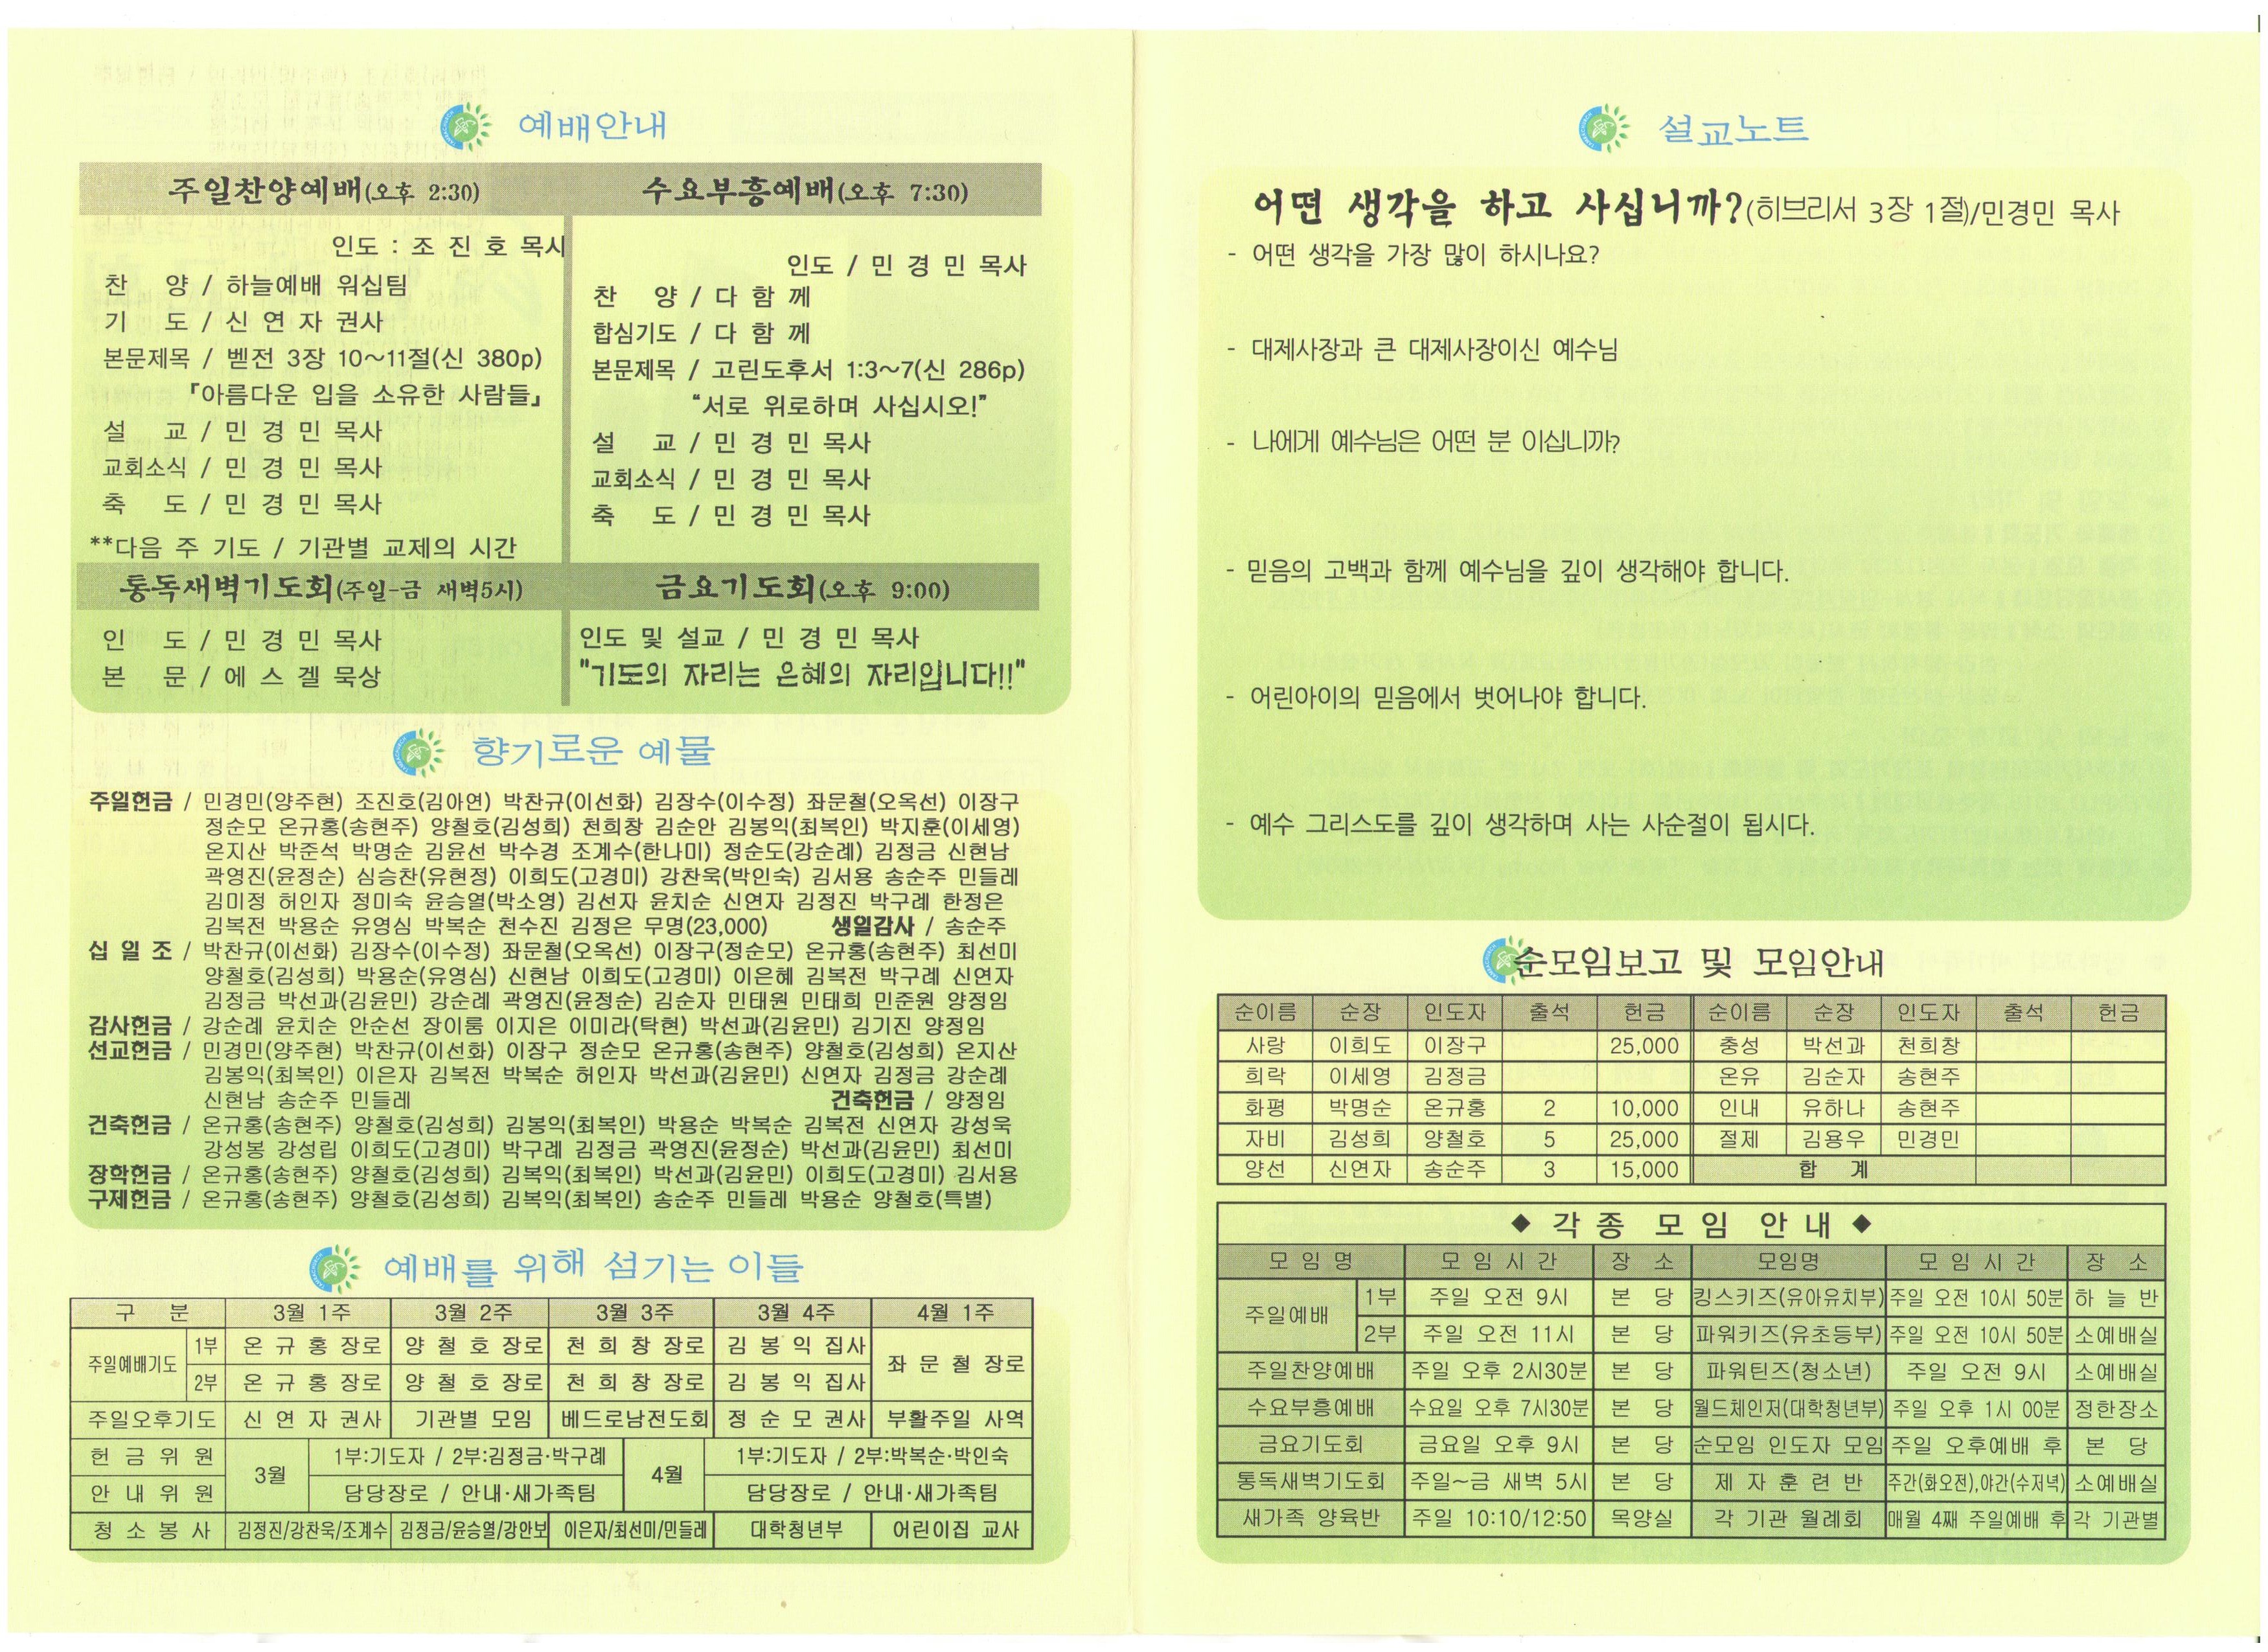 예배안내
주일찬양예배(오후 2:30)
인도 : 조 진 호 목사
찬 양 / 하늘예배 워십팀
기 도 / 신 연 자 권사
본문제목 / 벧전 3장 10~11절(신 380p)
『아름다운 입을 소유한 사람들』
설 교 / 민 경 민 목사
교회소식 / 민 경 민 목사
축 도 / 민 경 민 목사
**다음 주 기도 / 기관별 교제의 시간
수요부흥예배(오후 7:30)
인도 / 민 경 민 목사
찬 양 / 다 함 께
합심기도 / 다 함 께
본문제목 / 고린도후서 1:3~7(신 286p)
"서로 위로하며 사십시오!"
설 교 / 민 경 민 목사
교회소식 / 민 경 민 목사
축 도 / 민 경 민 목사
통독새벽기도회(주일-금 새벽5시)
인 도 / 민 경 민 목사
본 문 / 에 스 겔 묵상
금요기도회(오후 9:00)
인도 및 설교 / 민 경 민 목사
"기도의 자리는 은혜의 자리입니다!!"
향기로운 예물
주일헌금 / 민경민(양주현) 조진호(김아연) 박찬규(이선화) 김장수(이수정) 좌문철(오옥선) 이장구
정순모 온규홍(송현주) 양철호(김성희) 천희창 김순안 김봉익(최복인) 박지훈(이세영)
온지산 박준석 박명순 김윤선 박수경 조계수(한나미) 정순도(강순례) 김정금 신현남
곽영진(윤정순) 심승찬(유현정) 이희도(고경미) 강찬욱(박인숙) 김서용 송순주 민들레
김미정 허인자 정미숙 윤승열(박소영) 김선자 윤치순 신연자 김정진 박구례 한정은
김복전 박용순 유영심 박복순 천수진 김정은 무명(23,000) 생일감사 / 송순주
십 일 조 / 박찬규(이선화) 김장수(이수정) 좌문철(오옥선) 이장구(정순모) 온규홍(송현주) 최선미
양철호(김성희) 박용순(유영심) 신현남 이희도(고경미) 이은혜 김복전 박구례 신연자
김정금 박선과(김윤민) 강순례 곽영진(윤정순) 김순자 민태원 민태희 민준원 양정임
감사헌금 / 강순례 윤치순 안순선 장이룸 이지은 이미라(탁현) 박선과(김윤민) 김기진 양정임
선교헌금 / 민경민(양주현) 박찬규(이선화) 이장구 정순모 온규홍(송현주) 양철호(김성희) 온지산
김봉익(최복인) 이은자 김복전 박복순 허인자 박선과(김윤민) 신연자 김정금 강순례
신현남 송순주 민들레 건축헌금 / 양정임
건축헌금 / 온규홍(송현주) 양철호(김성희) 김봉익(최복인) 박용순 박복순 김복전 신연자 강성욱
강성봉 강성립 이희도(고경미) 박구례 김정금 곽영진(윤정순) 박선과(김윤민) 최선미
장학헌금 / 온규홍(송현주) 양철호(김성희) 김복익(최복인) 박선과(김윤민) 이희도(고경미) 김서용
구제헌금 / 온규홍(송현주) 양철호(김성희) 김복익(최복인) 송순주 민들레 박용순 양철호(특별)
예배를 위해 섬기는 이들
구 분 3월 1주 3월 2주 3월 3주 3월 4주 4월 1주
주일예배기도 1부 온 규 홍 장로 양 철 호 장로 천 희 창 장로 김 봉 익 집사 좌 문 철 장로
2부 온 규 홍 장로 양 철 호 장로 천 희 창 장로 김 봉 익 집사
주일오후기도 신 연 자 권사 기관별 모임 베드로남전도회 정 순 모 권사 부활주일 사역
헌 금 위 원 3월 1부:기도자 / 2부:김정금·박구례 4월 1부:기도자 / 2부:박복순·박인숙
안 내 위 원 담당장로 / 안내·새가족팀 담당장로 / 안내·새가족팀
청 소 봉 사 김정진/강찬욱/조계수 김정금/윤승열/강안보 이은자/최선미/민들레 대학청년부 어린이집 교사
설교노트
어떤 생각을 하고 사십니까?(히브리서 3장 1절)/민경민 목사
- 어떤 생각을 가장 많이 하시나요?
- 대제사장과 큰 대제사장이신 예수님
- 나에게 예수님은 어떤 분 이십니까?
- 믿음의 고백과 함께 예수님을 깊이 생각해야 합니다.
- 어린아이의 믿음에서 벗어나야 합니다.
- 예수 그리스도를 깊이 생각하며 사는 사순절이 됩시다.
순모임보고 및 모임안내
순이름 순장 인도자 출석 헌금 순이름 순장 인도자 출석 헌금
사랑 이희도 이장구 25,000 충성 박선과 천희창
희락 이세영 김정금 온유 김순자 송현주
화평 박명순 온규홍 2 10,000 인내 유하나 송현주
자비 김성희 양철호 5 25,000 절제 김용우 민경민
양선 신연자 송순주 3 15,000 합 계
◆ 각 종 모 임 안 내 ◆
모 임 명 모 임 시 간 장 소 모임명 모 임 시 간 장 소
주일예배 1부 주일 오전 9시 본 당 킹스키즈(유아유치부) 주일 오전 10시 50분 하 늘 반
2부 주일 오전 11시 본 당 파워키즈(유초등부) 주일 오전 10시 50분 소예배실
주일찬양예배 주일 오후 2시30분 본 당 파워틴즈(청소년) 주일 오전 9시 소예배실
수요부흥예배 수요일 오후 7시30분 본 당 월드체인저(대학청년부) 주일 오후 1시 00분 정한장소
금요기도회 금요일 오후 9시 본 당 순모임 인도자 모임 주일 오후예배 후 본 당
통독새벽기도회 주일~금 새벽 5시 본 당 제 자 훈 련 반 주간(화오전),야간(수저녁) 소예배실
새가족 양육반 주일 10:10/12:50 목양실 각 기관 월례회 매월 4째 주일예배 후 각 기관별